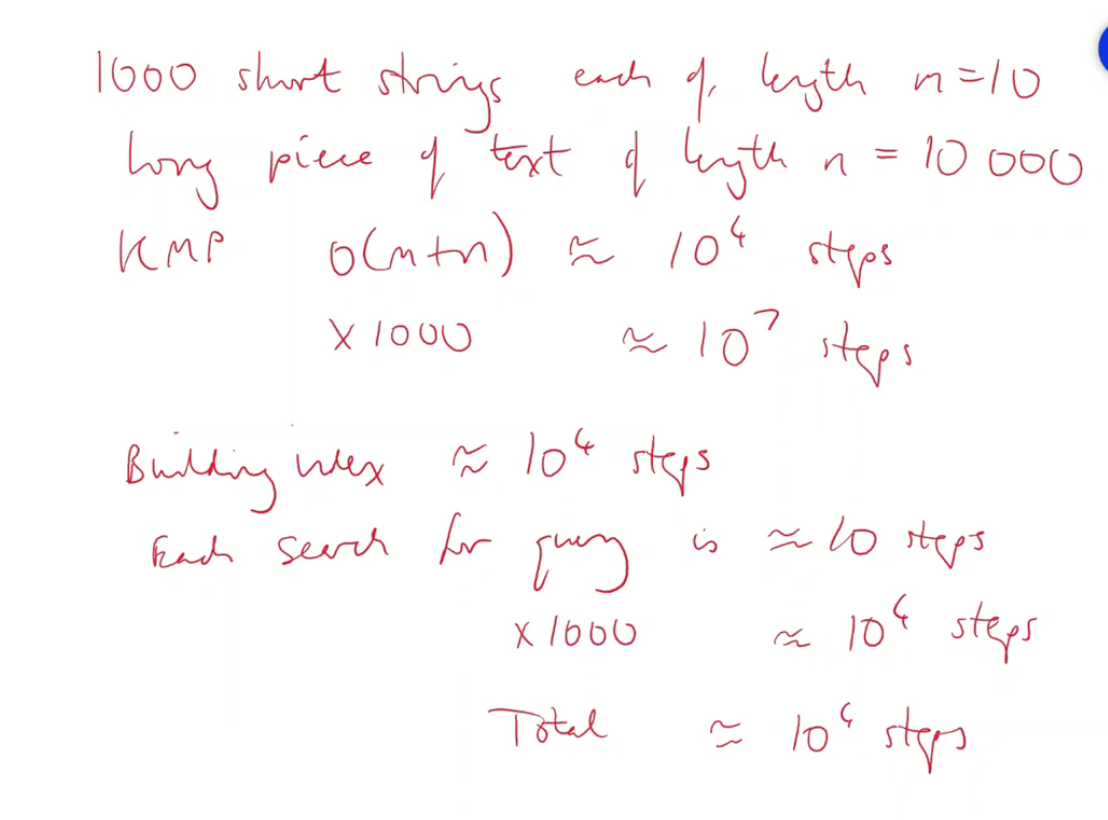 1000 short strings each of length n=10
Long piece of text of length n = 10 000
KMP O(m+n) ≈ 10⁴ steps
× 1000 ≈ 10⁷ steps
Building index ≈ 10⁴ steps
Each search for query is ≈ 10 steps
× 1000 ≈ 10⁴ steps
Total ≈ 10⁴ steps